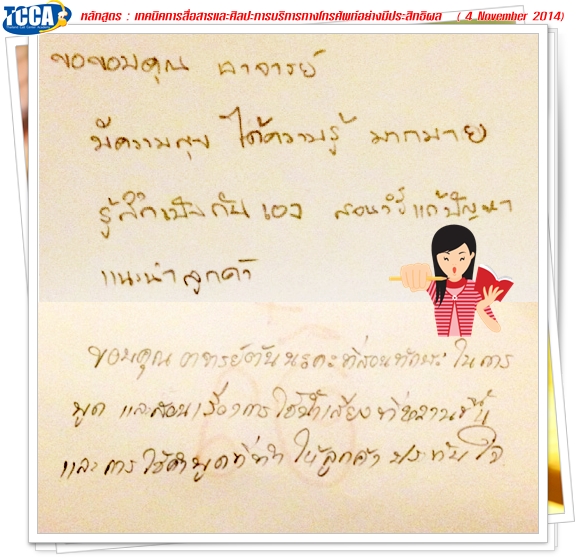 TCCA
หลักสูตร : เทคนิคการสื่อสารและศิลปะการบริการทางโทรศัพท์อย่างมีประสิทธิผล ( 4 November 2014)
ขอขอบคุณ อาจารย์
มีความสุข ได้ความรู้ มากมาย
รู้สึกเป็นกันเอง สอนวิธีแก้ปัญหา
แนะนำลูกค้า
ขอบคุณ อาจารย์ที่สอนทักษะ ในการ
พูด และสอนเรื่องการใช้น้ำเสียง ที่หวานขึ้น
และการใช้คำพูดที่ทำ ให้ลูกค้า ประทับใจ